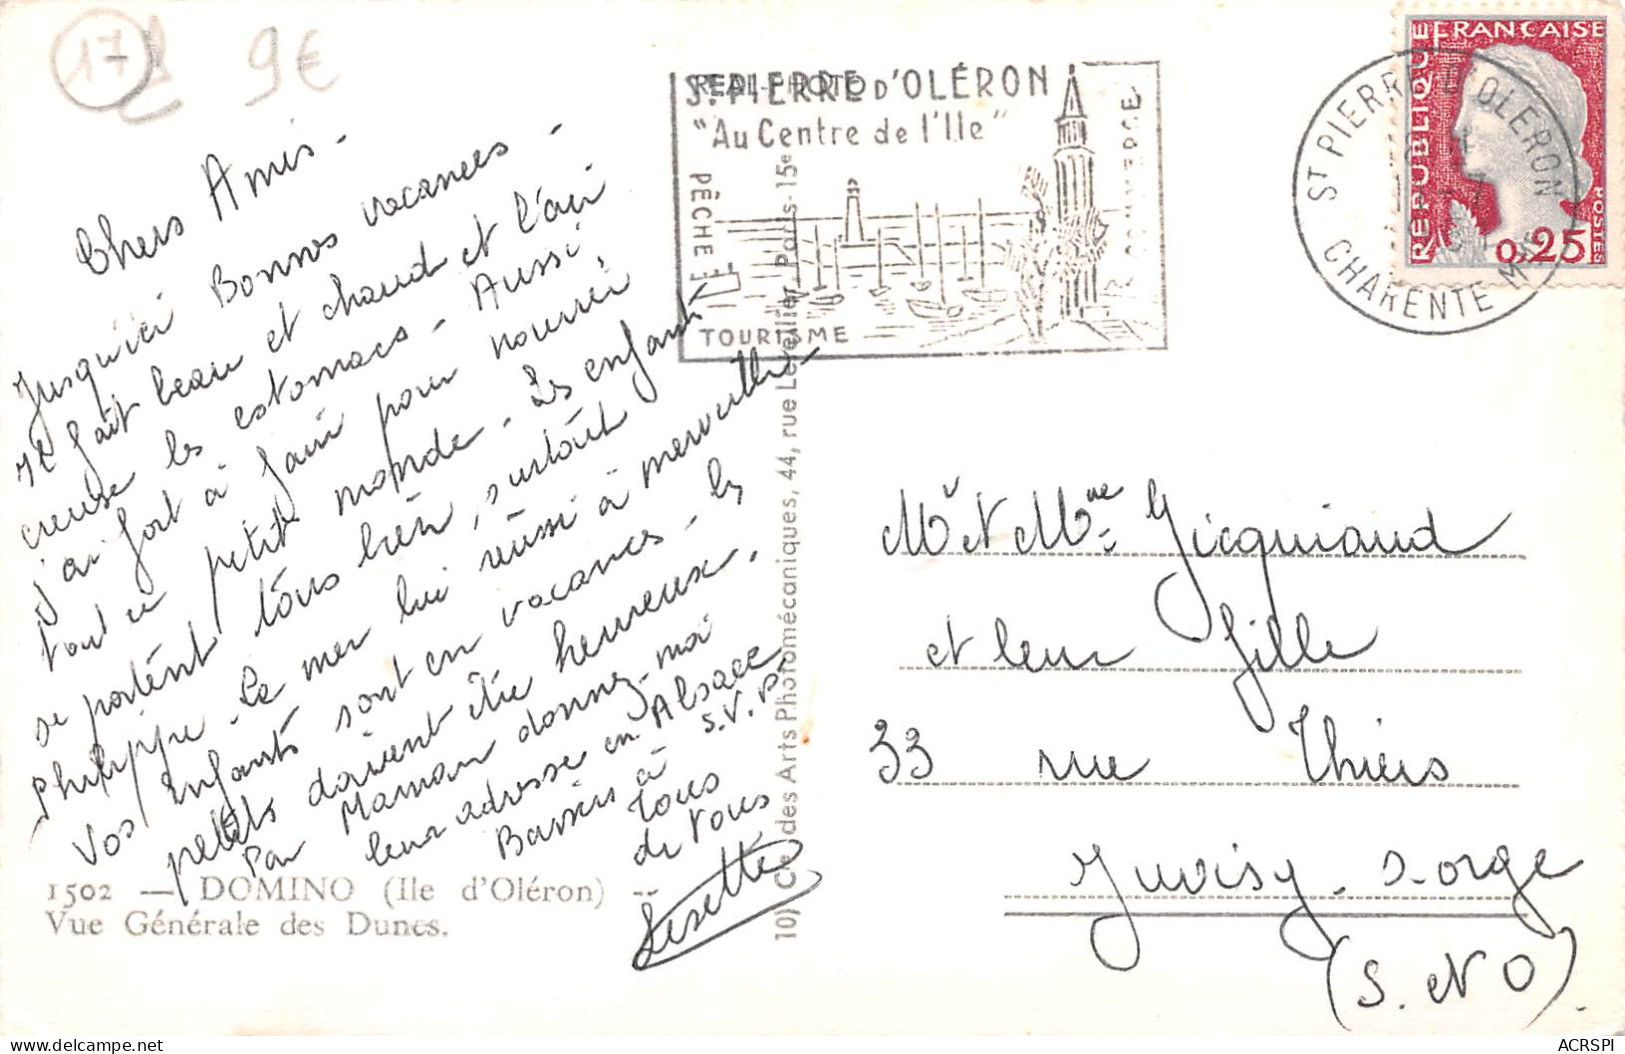 17
9€
Chers Amis -
Bonnes vacances -
Jusqu'ici
Il fait beau et chaud et l'air
creuse les estomacs - Aussi,
j'ai fort à faire pour nourrir
tout ce petit monde - Les enfants
se portent tous bien, surtout
Philippe - La mer lui réussi à merveille -
Vos enfants sont en vacances - les
petits doivent être heureux.
Par Maman donnez-moi
leur adresse en Alsace
S.V.P.
à
Tous
de Nous
Lisette
1502 — DOMINO (Ile d'Oléron) --
Vue Générale des Dunes.
REAL-PHOTO
St PIERRE D'OLÉRON
"Au Centre de l'Ile"
PÊCHE
TOURISME
COMMERCE
10) Cie des Arts Photomécaniques, 44, rue Letellier, Paris-15e
ST PIERRE D'OLERON
CHARENTE Mme
REPUBLIQUE FRANÇAISE
POSTES
0,25
Mr et Mme Gicquiaud
et leur fille
33 rue Thiers
Juvisy-s-orge
(S. et O).
ACRSPI